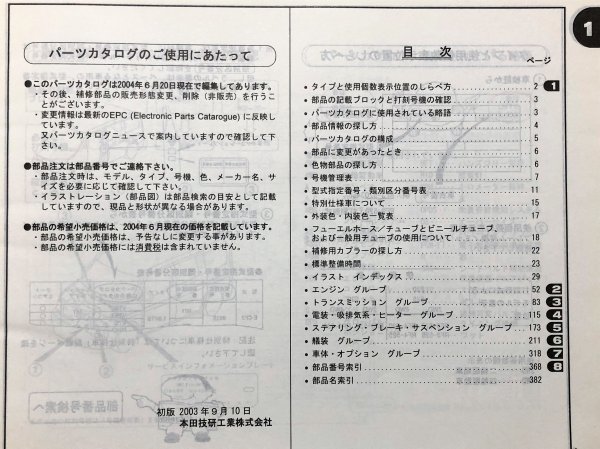 パーツカタログのご使用にあたって
●このパーツカタログは2004年6月20日現在で編集してあります。
・その後、補修部品の販売形態変更、削除（非販売）を行うことがございます。
・変更情報は最新のEPC (Electronic Parts Catarogue) に反映しています。
又パーツカタログニュースで案内していますので確認して下さい。
●部品注文は部品番号でご連絡下さい。
・部品注文時は、モデル、タイプ、号機、色、メーカー名、サイズを必要に応じて確認して下さい。
・イラストレーション（部品図）は部品検索の目安として記載していますので、現品と形状が異なる場合があります。
●部品の希望小売価格は、2004年6月現在の価格を記載しています。
・部品の希望小売価格は、予告なしに変更する事があります。
・部品の希望小売価格には消費税は含まれていません。
初版 2003年9月10日
本田技研工業株式会社
目 次
ページ
・タイプと使用個数表示位置のしらべ方 2 1
・部品の記載ブロックと打刻号機の確認 3
・パーツカタログに使用されている略語 3
・部品情報の探し方 4
・パーツカタログの構成 5
・部品に変更があったとき 6
・色物部品の探し方 6
・号機管理表 7
・型式指定番号・類別区分番号表 11
・特別仕様車について 15
・外装色・内装色一覧表 17
・フューエルホース／チューブとビニールチューブ、
および一般用チューブの使用について 18
・補修用カプラーの探し方 22
・標準整備時間 23
・イラスト インデックス 29
・エンジン グループ 52 2
・トランスミッション グループ 83 3
・電装・吸排気系・ヒーター グループ 115 4
・ステアリング・ブレーキ・サスペンション グループ 173 5
・艤装 グループ 211 6
・車体・オプション グループ 318 7
・部品番号索引 368 8
・部品名索引 382
1